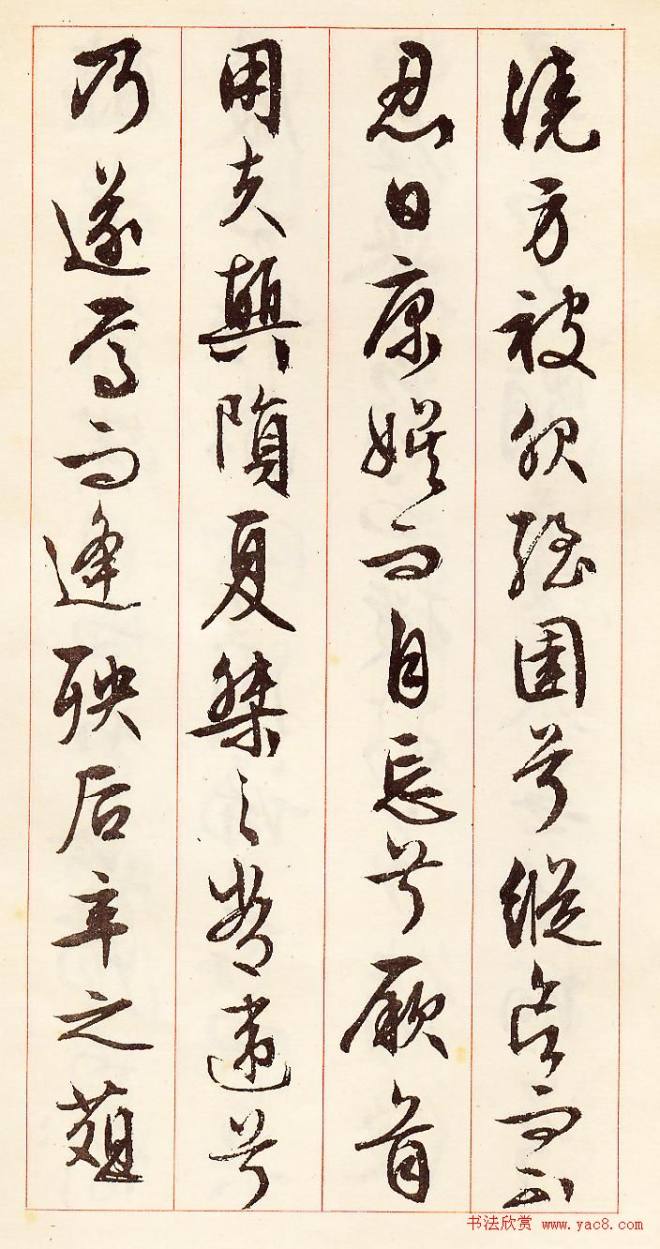 澆身被服強圉兮縱欲而不
忍日康娛而自忘兮厥首
用夫顛隕夏桀之常違兮
乃遂焉而逢殃后辛之葅
书法欣赏 www.yac8.com